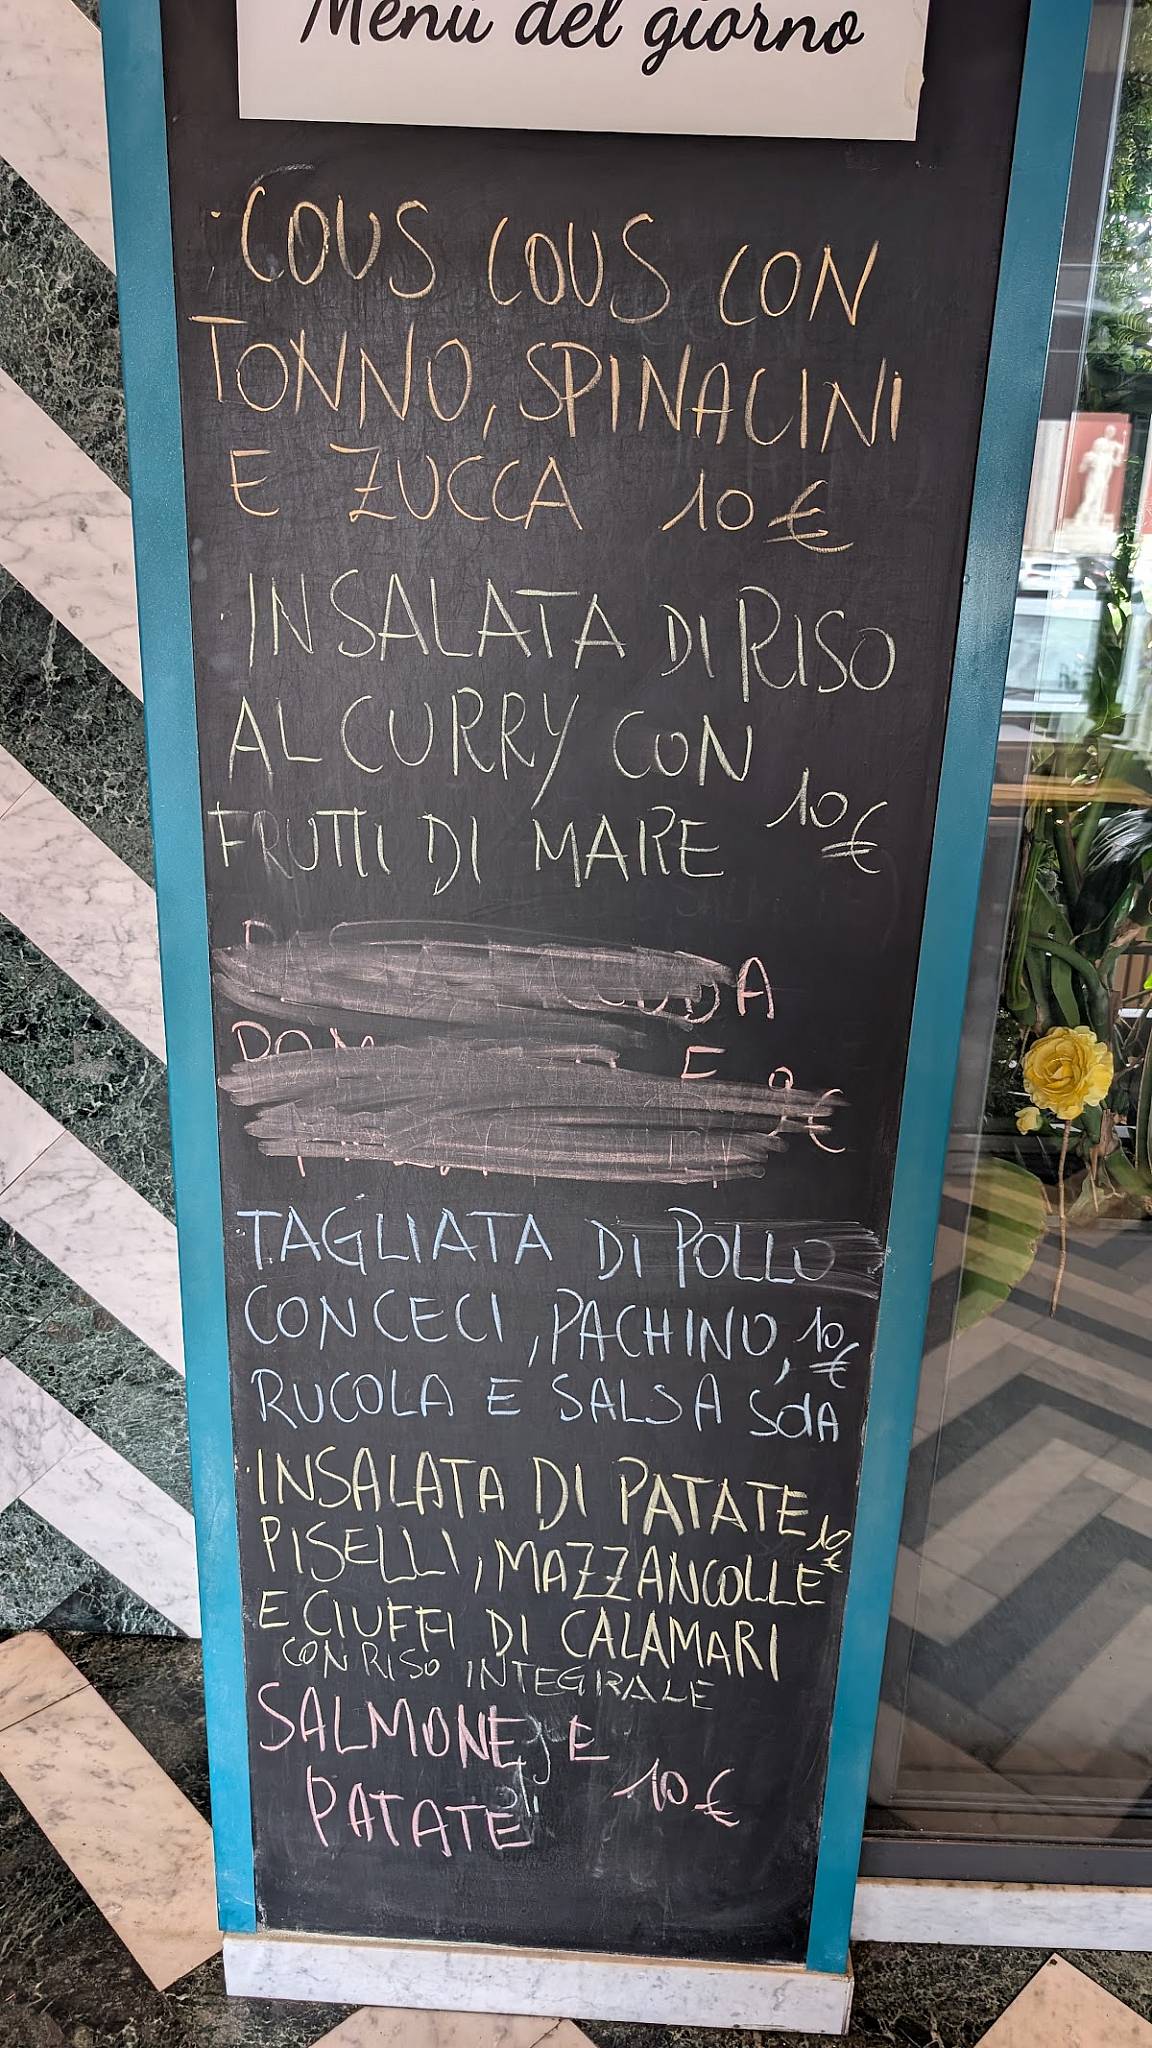 Menù del giorno
· COUS COUS CON
TONNO, SPINACINI
E ZUCCA 10 €
· INSALATA DI RISO
AL CURRY CON
FRUTTI DI MARE 10 €
E
€
· TAGLIATA DI POLLO
CON CECI, PACHINO, 10 €
RUCOLA E SALSA SOIA
· INSALATA DI PATATE
PISELLI, MAZZANCOLLE 10 €
E CIUFFI DI CALAMARI
CON RISO INTEGRALE
SALMONE E
PATATE 10 €